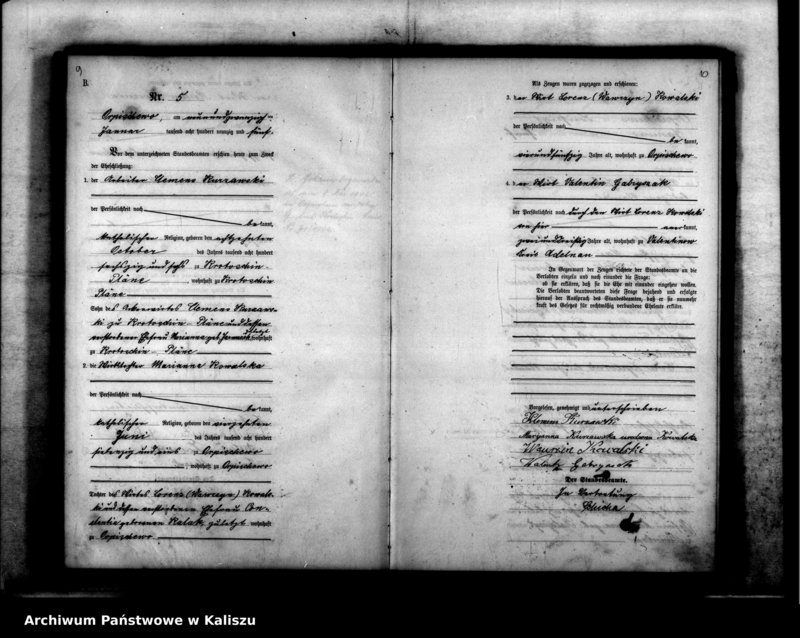 9
B.
Nr. 5
Orpischewo, am neunundzwanzigsten
Januar tausend acht hundert neunzig und fünf.
Vor dem unterzeichneten Standesbeamten erschienen heute zum Zweck
der Eheschließung:
1. der Arbeiter Clemens Kurzawski
der Persönlichkeit nach
be kannt,
katholischer Religion, geboren den achtzehnten
October des Jahres tausend acht hundert
sechszig und sechs zu Krotoschin
Pläne, wohnhaft zu Krotoschin
Pläne
Sohn des Clemens Kurzaw-
ski zu Krotoschin Pläne und dessen
verstorbener Ehefrau Marianna geb.
zuletzt wohnhaft
zu Krotoschin Pläne
2. die Wirthstochter Marianna Kowalska
der Persönlichkeit nach
be kannt,
katholischer Religion, geboren den vierzehnten
Juni des Jahres tausend acht hundert
siebenzig und eins zu Orpischewo
, wohnhaft zu Orpischewo
Tochter des Wirthes Lorenz (Wawrzyn) Kowals-
ki und dessen verstorbenen Ehefrau Con-
stantia geborenen Kalak, zuletzt wohnhaft
zu Orpischewo
10
Als Zeugen waren zugezogen und erschienen:
3. der Wirt Lorenz (Wawrzyn) Kowalski
der Persönlichkeit nach
be kannt,
vierundfünfzig Jahre alt, wohnhaft zu Orpischewo
4. der Wirt Valentin Gabryszak
der Persönlichkeit nach durch den Wirt Lorenz Kowalski
von hier aner kannt,
zweiunddreißig Jahre alt, wohnhaft zu Valentinow
Kreis Adelnau
In Gegenwart der Zeugen richtete der Standesbeamte an die
Verlobten einzeln und nach einander die Frage:
ob sie erklären, daß sie die Ehe mit einander eingehen wollen.
Die Verlobten beantworteten diese Frage bejahend und erfolgte
hierauf der Ausspruch des Standesbeamten, daß er sie nunmehr
kraft des Gesetzes für rechtmäßig verbundene Eheleute erkläre.
Vorgelesen, genehmigt und unterschrieben
Klemens Kurzawski
Maryanna Kurzawska Kowalska
Wawrzin Kowalski
Gabryszak
Der Standesbeamte.
In Vertretung
Archiwum Państwowe w Kaliszu